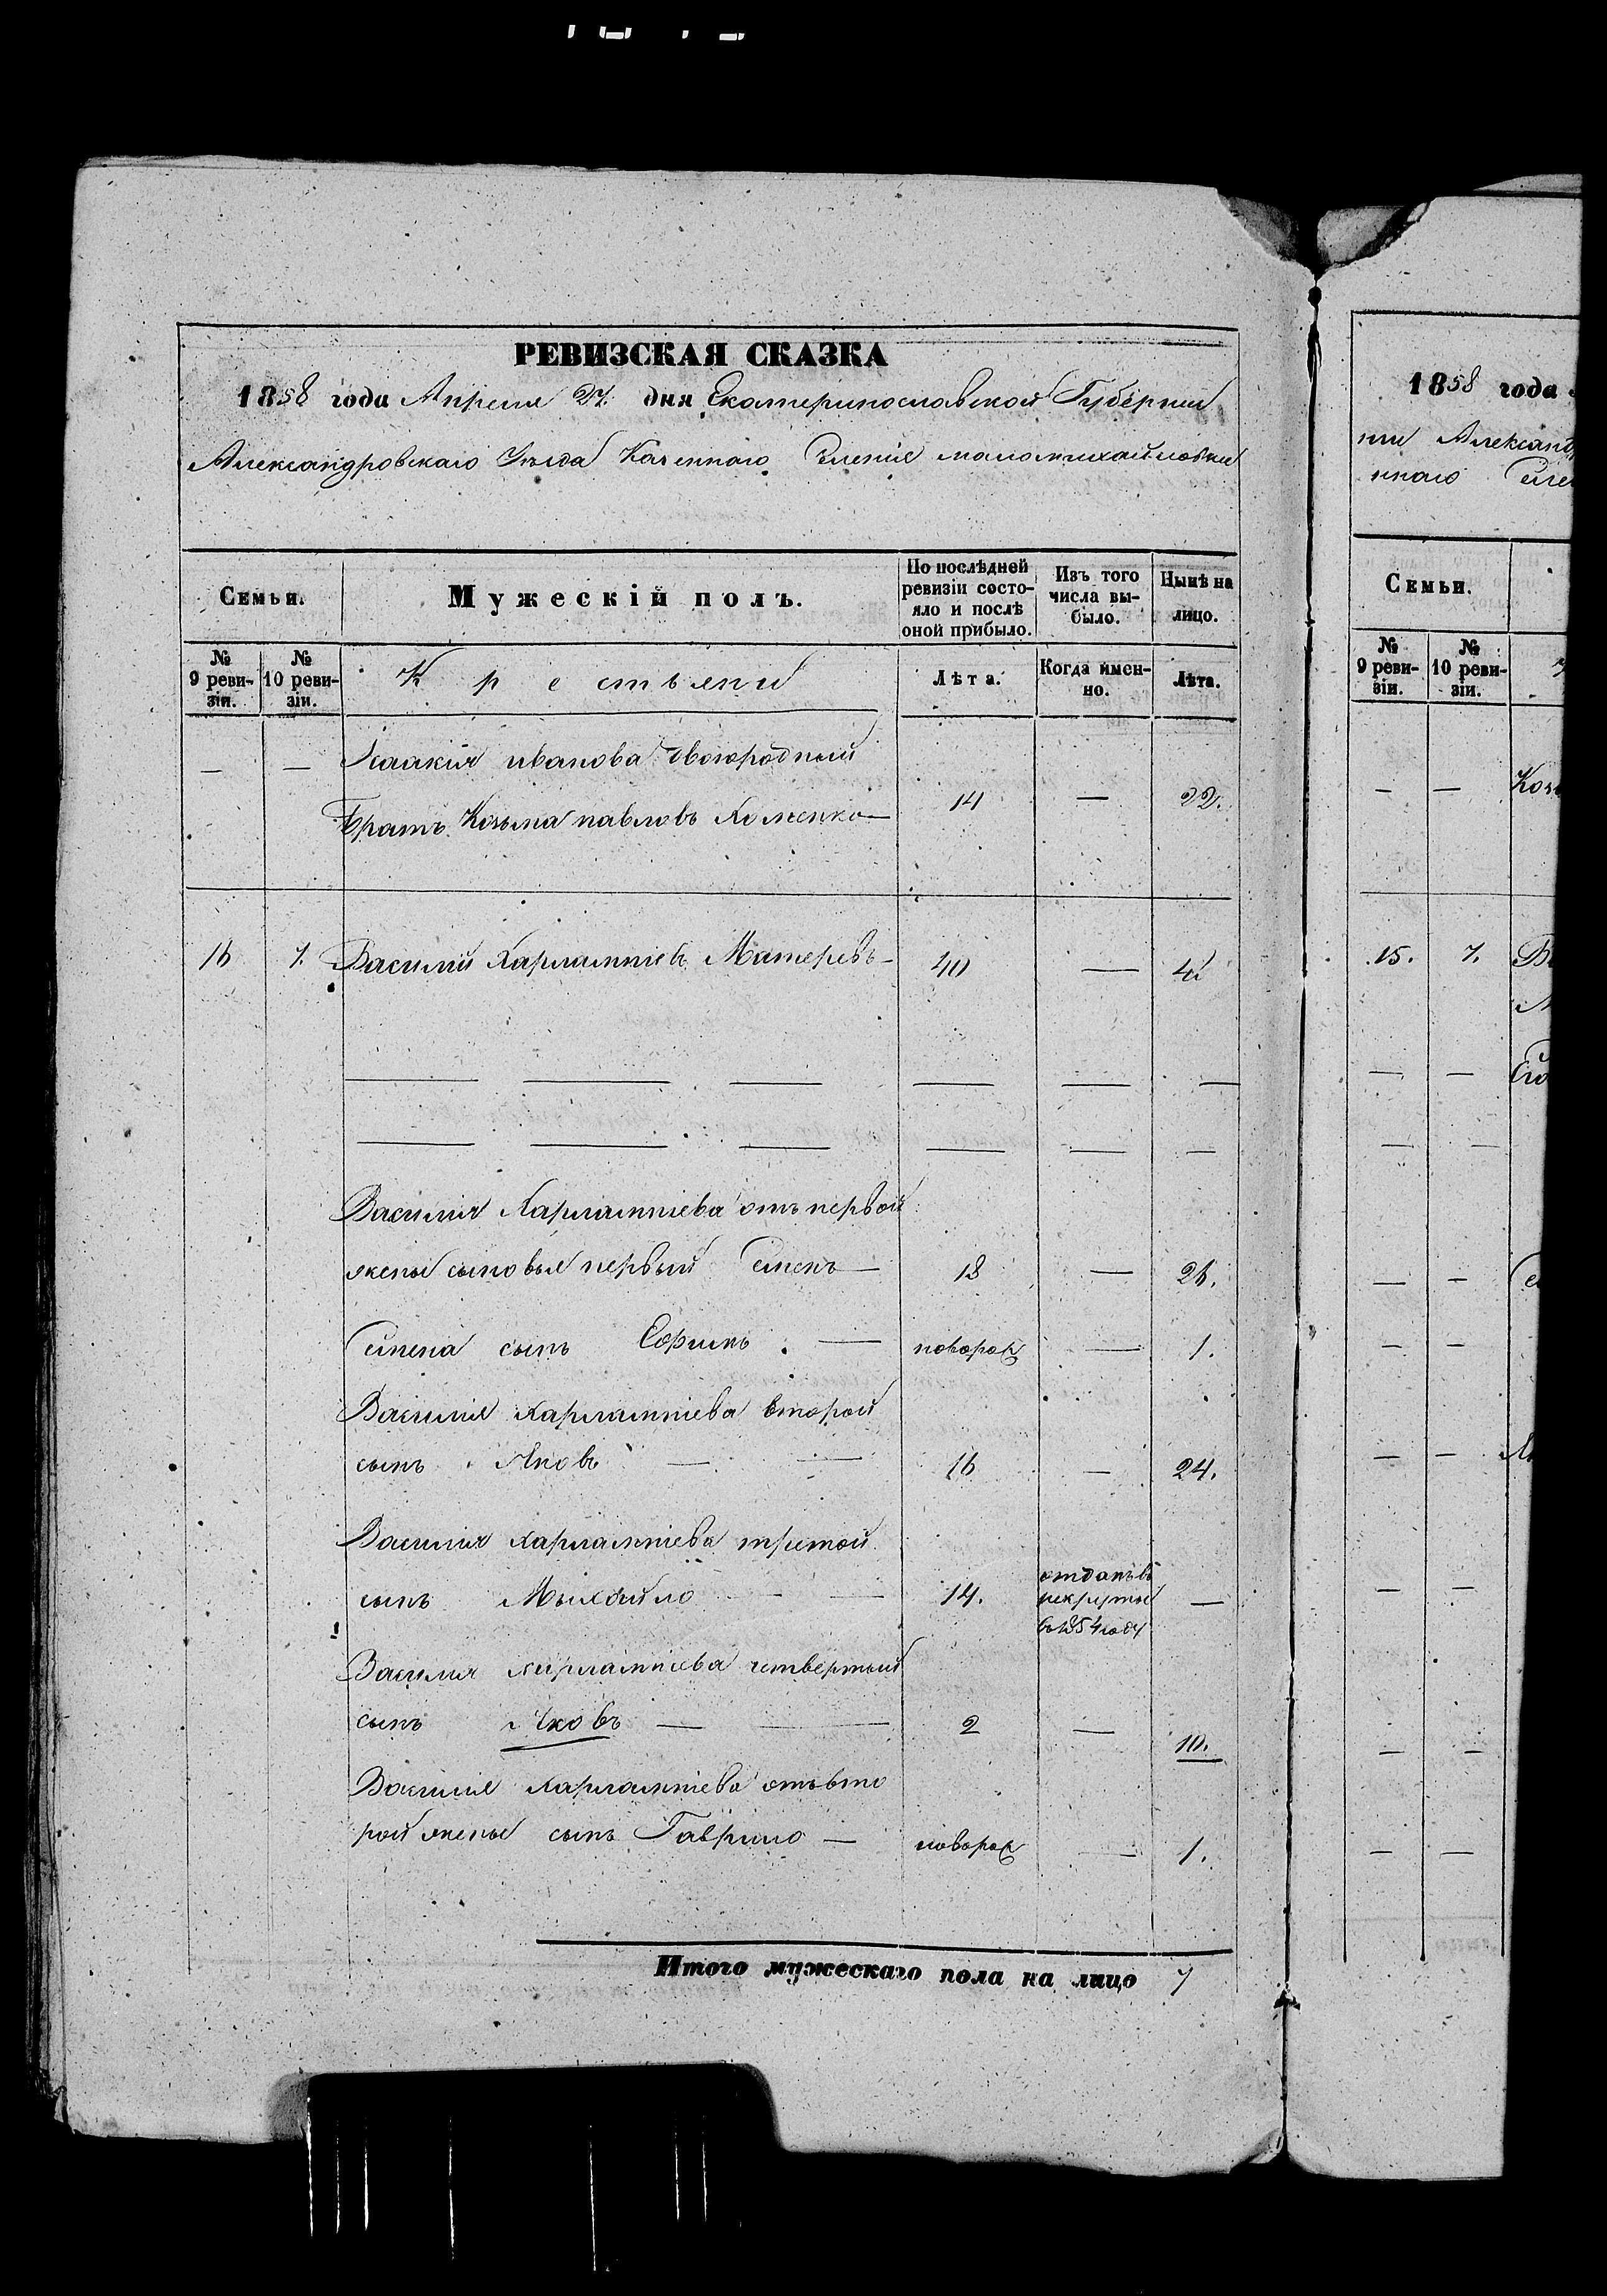 РЕВИЗСКАЯ СКАЗКА
1858 года Апреля 27. дня Екатеринославской Губернии
Александровскаго Уѣзда Казеннаго Селенія маломихайловки
Семьи.
Мужескій полъ.
По послѣдней ревизіи состо-
яло и послѣ оной прибыло.
Изъ того числа вы-
было.
Нынѣ на лицо.
№ 9 реви-
зіи.
№ 10 реви-
зіи.
Крестьяни
Лѣта.
Когда имен-
но.
Лѣта.
— — Исаакія иванова двоюродный
Братъ Козьма павловъ Хоменко — 14 — 22.
16 7. Василій Харлампіевъ Матеревъ — 40 — 4
Василія Харлампіева отъ первой
жены сыновья первый Семенъ — 18 — 26.
Семена сынъ Ефимъ — новорож — 1.
Василія Харлампіева второй
сынъ Яковъ — — 16 — 24.
Василія харлампіева третой
сынъ Михайло — — 14. отданъ въ
рекруты —
въ 1854 году
Василія харлампіева четвертый
сынъ Яковъ — — 2 — 10.
Василія Харлампіева отъ вто
рой жены сынъ Гаврило — новорож — 1.
Итого мужескаго пола на лицо 7
1858 года
нии Александ
ннаго Селе
Семьи.
№ 9 реви-
зіи.
№ 10 реви-
зіи.
— — Коз
15. 7. В